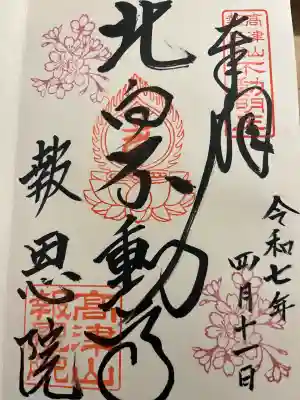 奉拝
高津山
不動明王
令和七年
四月十一日
北向不動尊
報恩院
高津山
報恩院